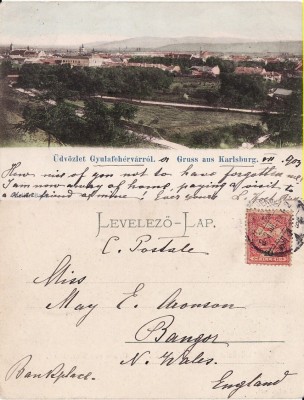 Üdvözlet Gyulafehérvárról. Gruss aus Karlsburg.
How nice of you not to have forgotten me.
I am now away of home, paying a visit to
a dear friend of mine! Ever yours
LEVELEZŐ-LAP.
C. Postale
Miss
May E. Aronson
Bangor
N. Wales.
Bankplace.
England